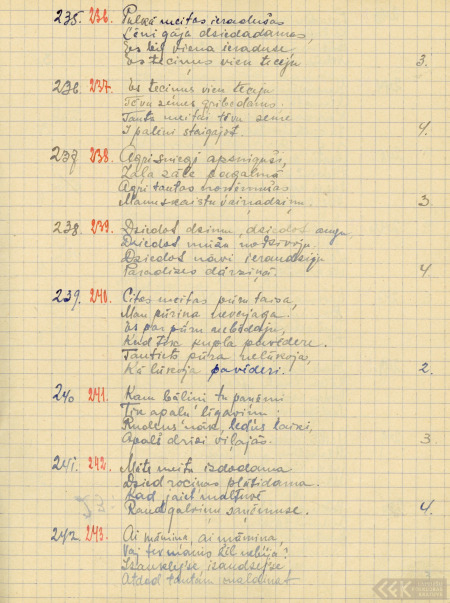 235. 236. Pulkā meitas ieradušas
Lēni gāja dziedadamas,
Es bij viena ieraduse
Es tecinus vien teceju 3.
236. 237. Es tecinus vien teceju
Tēvu zemes gribedams.
Tautu meitai tēvu zeme
I palēni staigajot. 4.
237. 238. Agri sniegi apsniguši,
Zaļa zāle pagalmā
Agri tautas nonēmušas
Manu skaistu vaiņadziņu. 3.
238. 239. Dziedot dzimu, dziedot augu,
Dziedot mūžu nodzivoju.
Dziedot nāvi ieraudziju
Paradizes dārziņā. 4
239. 240. Citas meitas pūru taisa,
Man pūriņa nevajaga.
Es par pūru nebēdaju,
Kad tik kupla pavēdere.
Tautiets pūra nelūkoja,
Kā lūkoja pavēderi. 2.
240. 241. Kam bāliņi tu paņēmi
Tik apaļu līgaviņu:
Rudens nāks, ledus taisīs,
Apaļš drīzi viļajās. 3.
241. 242. Māte meitu izdodama
Dzied rociņas plātidama.
Kad jāiet maltuvē
Raud galviņu saņēmuse. 4.
242. 243. Ai māmiņa, ai māmiņa,
Vai tev manis žēl nebija?
Izauklējse, izaudzējse,
Atdod tautām maldinat 3.